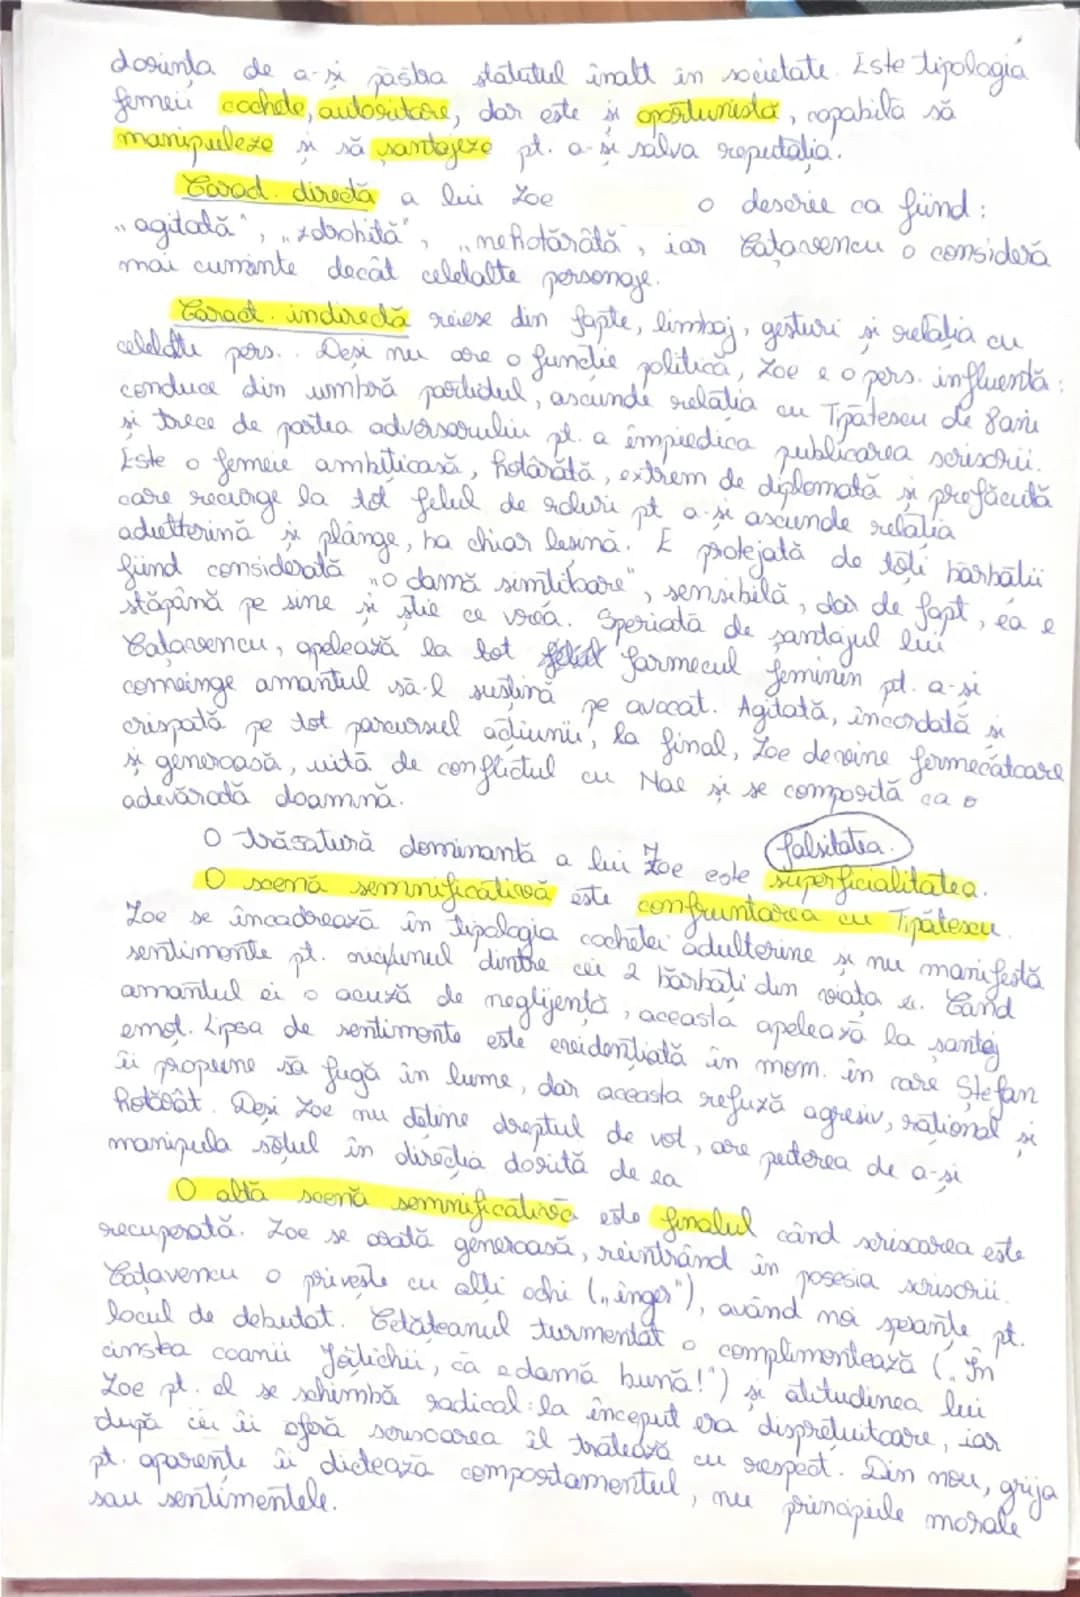 dorința de a-și păstra statutul înalt în societate. Este tipologia
femeii cochete, autoritare, dar este și oportunistă, capabilă să
manipuleze și să șantajeze pt. a-și salva reputația.
Caract. directă a lui Zoe o descrie ca fiind:
„agitată", „zdrobită", „nehotărâtă", iar Cațavencu o consideră
mai cuminte decât celelalte personaje.
Caract. indirectă reiese din fapte, limbaj, gesturi și relația cu
celelalte pers.. Deși nu are o funcție politică, Zoe e o pers. influentă:
conduce din umbră partidul, ascunde relația cu Tipătescu de 8 ani
și trece de partea adversarului pt. a împiedica publicarea scrisorii.
Este o femeie ambițioasă, hotărâtă, extrem de diplomată și prefăcută
care recurge la tot felul de roluri pt a-și ascunde relația
adulterină și plânge, ba chiar leșină. E protejată de toți bărbații
fiind considerată „o damă simțitoare", sensibilă, dar de fapt, ea e
stăpână pe sine și știe ce vrea. Speriată de șantajul lui
Cațavencu, apelează la tot farmecul feminin pt. a-și
convinge amantul să-l susțină pe avocat. Agitată, încordată și
crispată pe tot parcursul acțiunii, la final, Zoe devine fermecătoare
și generoasă, uită de conflictul cu Nae și se comportă ca o
adevărată doamnă.
falsitatea.
O trăsătură dominantă a lui Zoe este superficialitatea.
O scenă semnificativă este confruntarea cu Tipătescu.
Zoe se încadrează în tipologia cochetei adulterine și nu manifestă
sentimente pt. niciunul dintre cei 2 bărbați din viața ei. Când
amantul ei o acuză de neglijență, aceasta apelează la șantaj
emoț. Lipsa de sentimente este evidențiată în mom. în care Ștefan
îi propune să fugă în lume, dar aceasta refuză agresiv, rațional și
hotărât. Deși Zoe nu deține dreptul de vot, are puterea de a-și
manipula soțul în direcția dorită de ea
O altă scenă semnificativă este finalul când scrisoarea este
recuperată. Zoe se arată generoasă, reintrând în posesia scrisorii.
Cațavencu o privește cu alți ochi („înger"), având noi speranțe pt.
locul de debutat. Cetățeanul turmentat o complimentează („În
cinstea coanii Joițichii, că e damă bună!") și atitudinea lui
Zoe pt. el se schimbă radical: la început era disprețuitoare, iar
după ce îi oferă scrisoarea îl tratează cu respect. Din nou, grija
pt. aparențe îi dictează comportamentul, nu principiile morale
sau sentimentele.